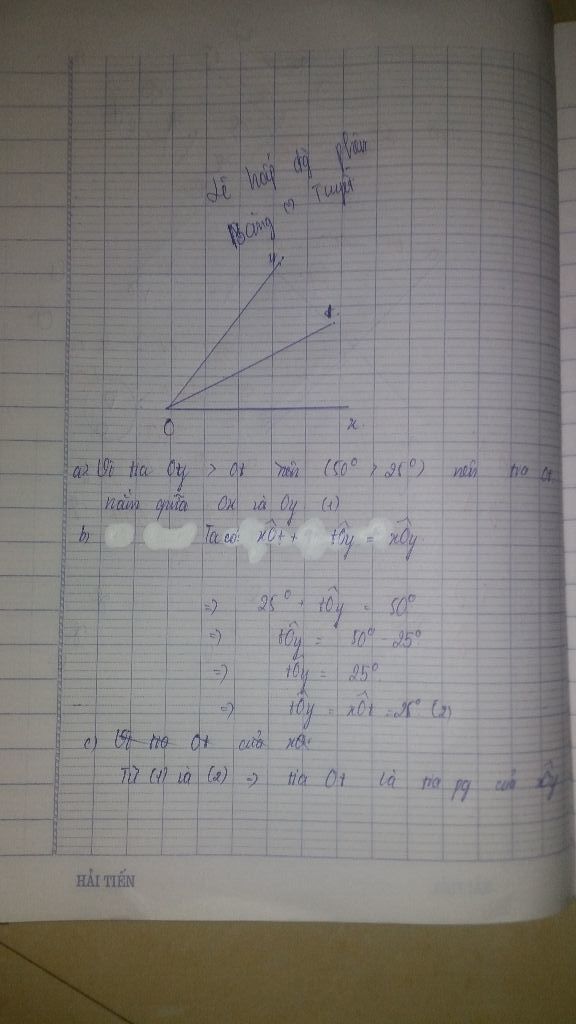 Lê
Băng Tuyết
y
t
O x
a) Vì tia Oy > Ot nên (50° > 25°) nên tia Ot
nằm giữa Ox và Oy (1)
b) Ta có: xÔt + tÔy = xÔy
=> 25° + tÔy = 50°
=> tÔy = 50° - 25°
=> tÔy = 25°
=> tÔy = xÔt = 25° (2)
c) Vì tia Ot của xO
Từ (1) và (2) => tia Ot là tia pg của xÔy
HẢI TIẾN